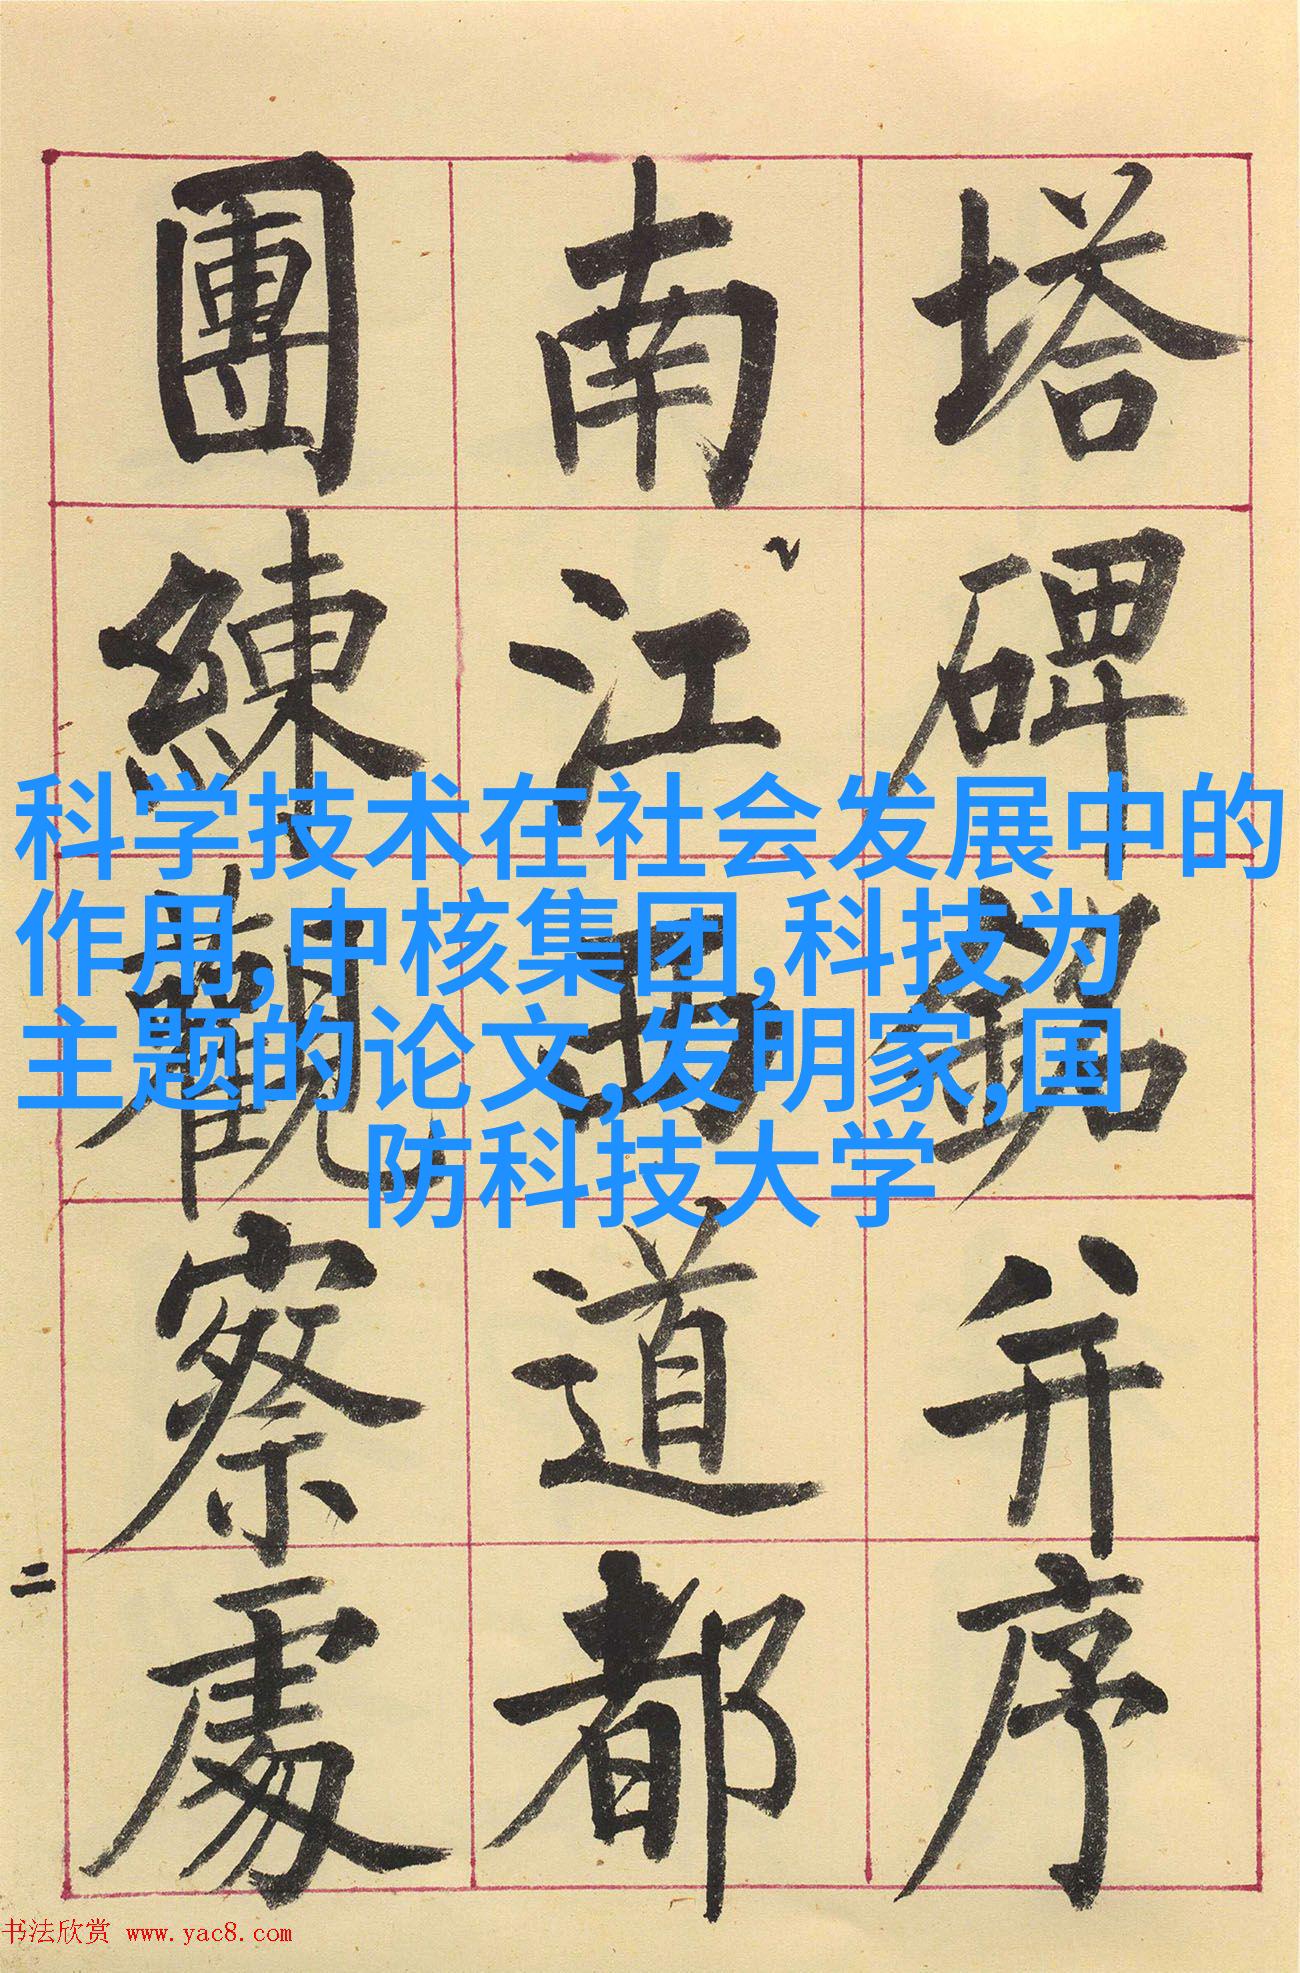 塔碑銘并序
南江西道都
團練觀察處
二
科学技术在社会发展中的
作用,中核集团,科技为
主题的论文,发明家,国
防科技大学
书法欣赏 www.yac8.com